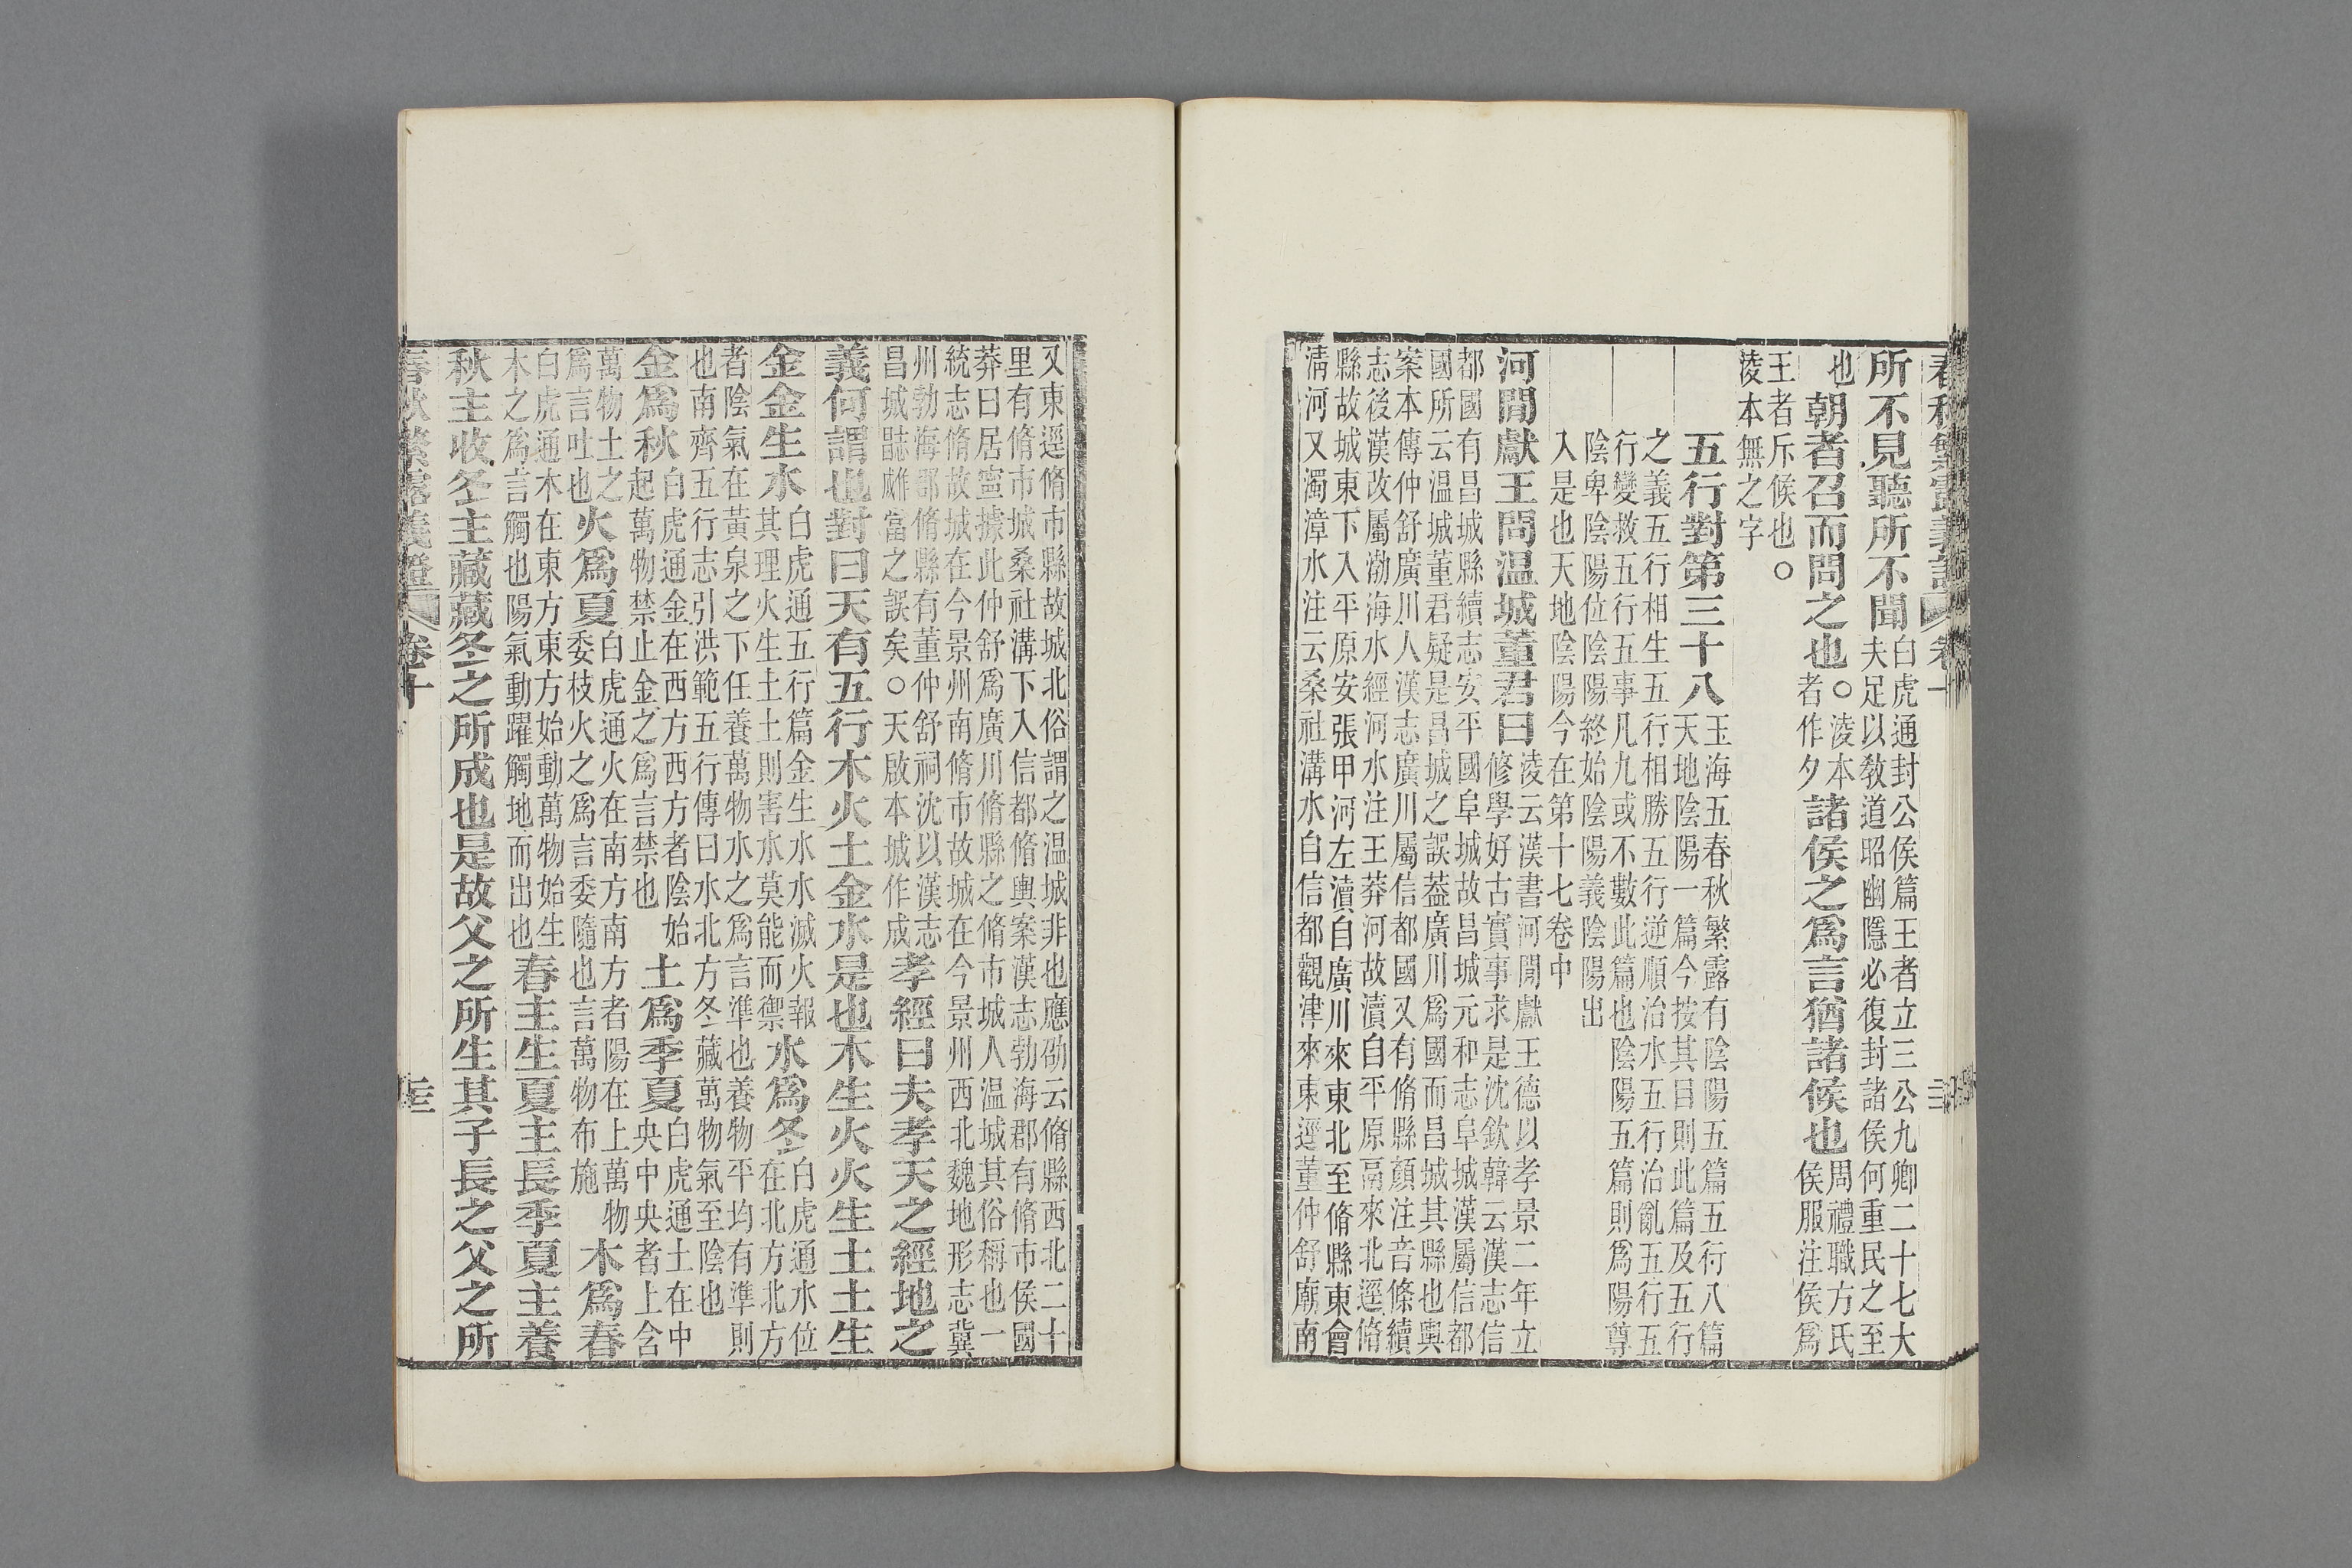 所不見聽所不聞白虎通封公侯篇王者立三公九卿二十七大夫足以敎道昭幽隱必復封諸侯何重民之至
也朝者召而問之也○淩本者作夕諸侯之爲言猶諸候也周禮職方氏侯服注侯爲
王者斥候也○淩本無之字
五行對第三十八玉海五春秋繁露有陰陽五篇五行八篇天地陰陽一篇今按其目則此篇及五行
之義五行相生五行相勝五行逆順治水五行治亂五行五行變救五行五事凡九或不數此篇也陰陽五篇則爲陽尊
陰卑陰陽位陰陽終始陰陽義陰陽出入是也天地陰陽今在第十七卷中
河閒獻王問温城董君曰淩云漢書河閒獻王德以孝景二年立修學好古實事求是沈欽韓云漢志信
都國有昌城縣續志安平國阜城故昌城元和志阜城漢屬信都國所云温城董君疑是昌城之誤葢廣川爲國而昌城其縣也輿
案本傳仲舒廣川人漢志廣川屬信都國又有脩縣顏注音條續志後漢改屬渤海水經河水注王莽河故瀆自平原鬲來北逕脩
縣故城東下入平原安張甲河左瀆自廣川來東北至脩縣東會清河又濁漳水注云桑社溝水自信都觀津來東逕董仲舒廟南
又東逕脩市縣故城北俗謂之温城非也應劭云脩縣西北二十里有脩市城桑社溝下入信都脩輿案漢志勃海郡有脩市侯國
莽曰居寍據此仲舒爲廣川脩縣之脩市城人温城其俗稱也一統志脩故城在今景州南脩市故城在今景州西北魏地形志冀
州勃海郡脩縣有董仲舒祠沈以漢志昌城嚭雝當之誤矣○天啟本城作成孝經曰夫孝天之經地之
義何謂也對曰天有五行木火土金水是也木生火火生土土生
金金生水白虎通五行篇金生水水滅火報其理火生土土則害水莫能而禦水爲冬白虎通水位在北方北方
者陰氣在黃泉之下任養萬物水之爲言準也養物平均有準則也南齊五行志引洪範五行傳曰水北方冬藏萬物氣至陰也
金爲秋白虎通金在西方西方者陰始起萬物禁止金之爲言禁也土爲季夏白虎通土在中央中央者上含
萬物土之爲言吐也火爲夏白虎通火在南方南方者陽在上萬物委枝火之爲言委隨也言萬物布施木爲春
白虎通木在東方東方始動萬物始生木之爲言觸也陽氣動躍觸地而出也春主生夏主長季夏主養
秋主收冬主藏藏冬之所成也是故父之所生其子長之父之所
春秋繁露義證 卷十